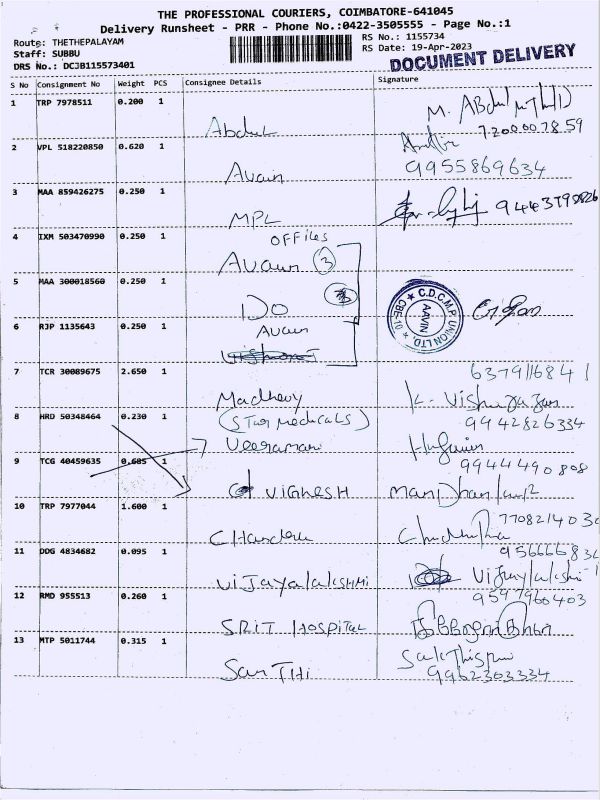 THE PROFESSIONAL COURIERS, COIMBATORE-641045
Delivery Runsheet - PRR - Phone No.:0422-3505555 - Page No.:1
Route: THETHEPALAYAM
RS No.: 1155734
Staff: SUBBU
RS Date: 19-Apr-2023
DRS No.: DCJB115573401
DOCUMENT DELIVERY
S No Consignment No Weight PCS Consignee Details Signature
1 TRP 7978511 0.200 1
Abdul
2 VPL 518220850 0.620 1
9955869634
Avain
3 MAA 859426275 0.250 1
MPL
OFFiles
4 IXM 503470990 0.250 1
Avaun 3
5 MAA 300018560 0.250 1
DO
C.D.C.M.P. UNION LTD. CBE-10
AAVIN
6 RJP 1135643 0.250 1
Avaun
7 TCR 30089675 2.650 1
Madhevy
(Star Medicals)
8 HRD 50348464 0.230 1
9942826334
Veeramani
9 TCG 40459635 0.685 1
9944490808
VIGNESH
10 TRP 7977044 1.600 1
11 DDG 4834682 0.095 1
Vijayalakshmi
12 RMD 955513 0.260 1
SRIT HOSPITAL
13 MTP 5011744 0.315 1
9962303334